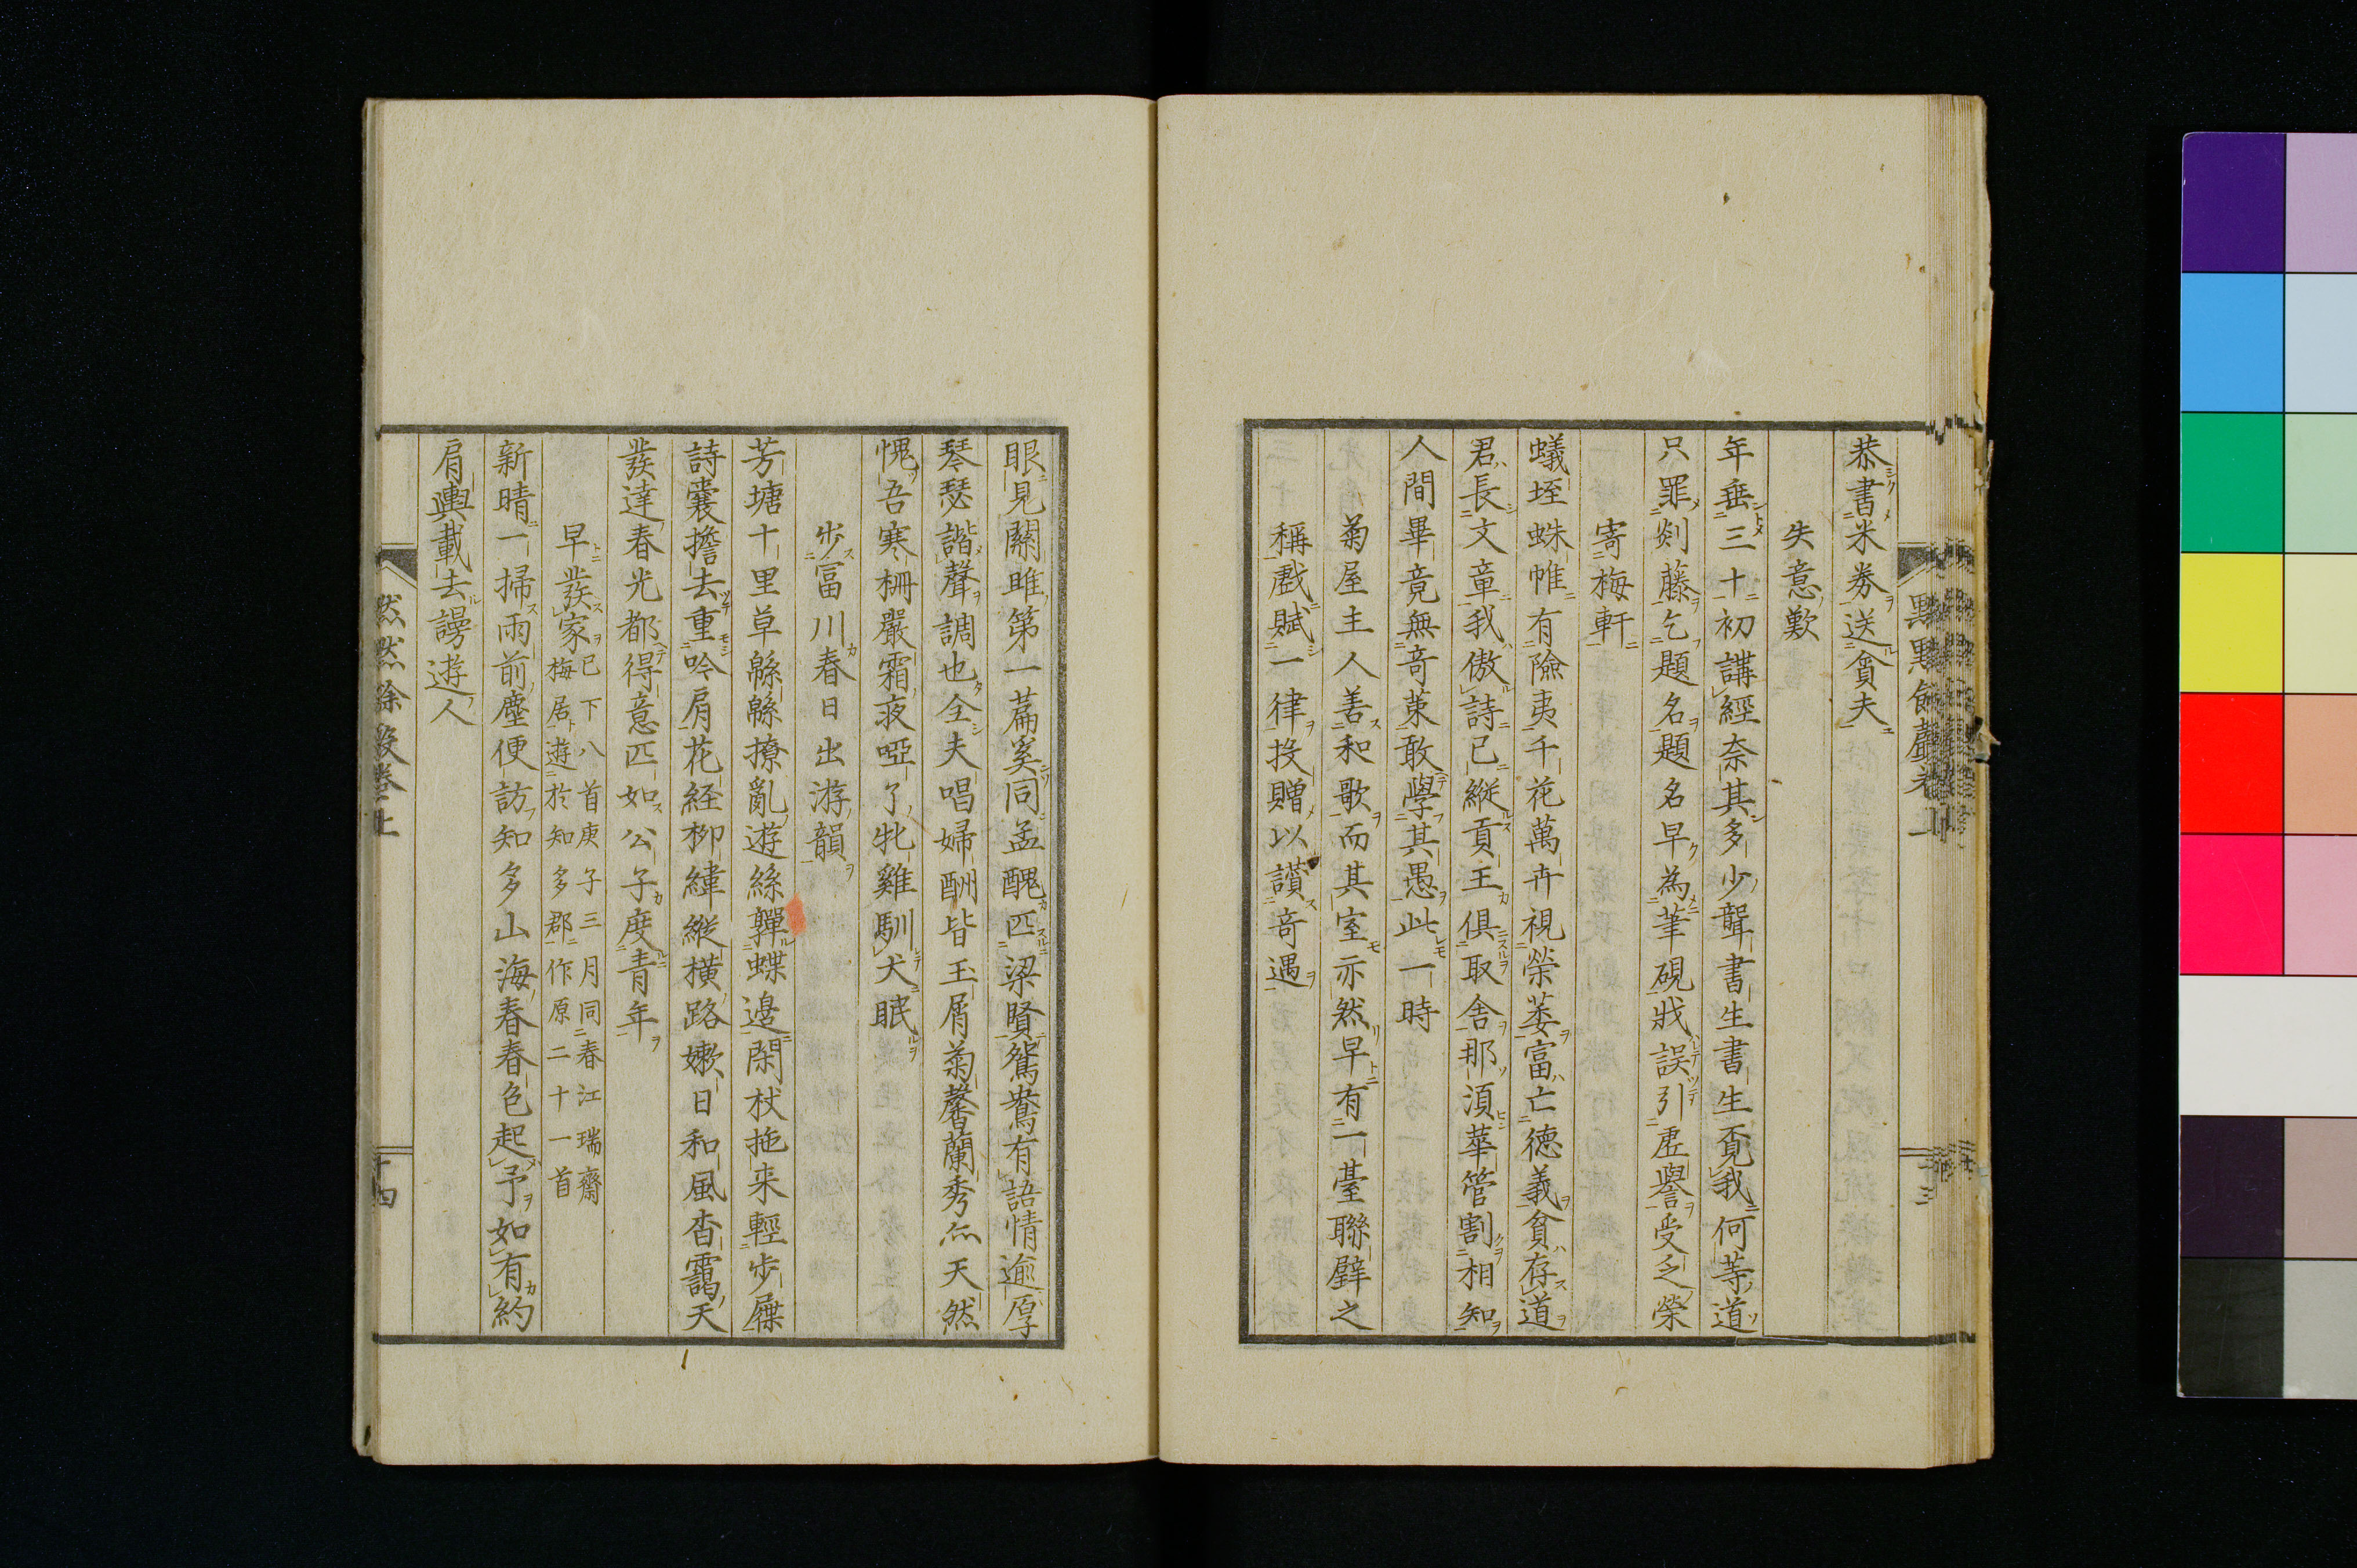 恭書米券送貧夫
失意歎
年垂三十初講經奈其多少聾書生書生覓我何等道
只罪剡藤乞題名題名早為筆硯戕誤引虛譽受乏榮
寄梅軒
蟻垤蛛帷有險夷千花萬卉視榮萎富亡德義貧存道
君長文章我傲詩已縱貢王俱取舍那須華管割相知
人間畢竟無竒策敢學其愚此一時
菊屋主人善和歌而其室亦然早有一臺聯璧之
稱戲賦一律投贈以讃奇遇
眼見關雎第一篇奚同孟醜匹梁賢鴛鴦有語情逾厚
琴瑟諧聲調也全夫唱婦酬皆玉屑菊馨蘭秀亦天然
愧吾寒柵嚴霜夜啞了牝雞馴犬眠
步冨川春日出游韻
芳塘十里草緜緜撩亂遊絲嚲蝶邊閑杖拖来輕步屧
詩囊擔去重吟肩花経柳緯縱横路嫰日和風杳靄天
發達春光都得意匹如公子度青年
早發家已下八首庚子三月同春江瑞齋
梅居遊於知多郡作原二十一首
新晴一掃雨前塵便訪知多山海春春色起予如有約
肩輿載去謾遊人
然然餘㱿卷上
十四